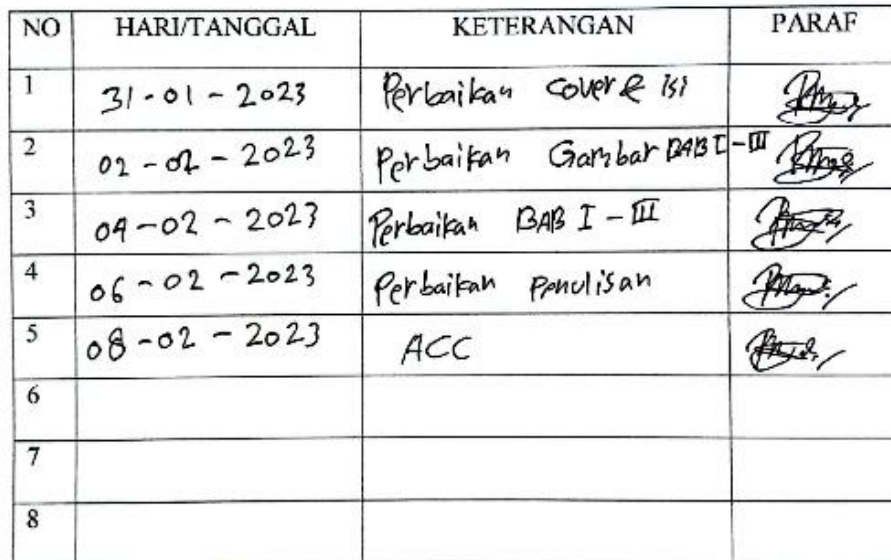 NO HARI/TANGGAL KETERANGAN PARAF
1 31-01-2023 Perbaikan cover & isi
2 02-02-2023 Perbaikan Gambar BAB I-III
3 04-02-2023 Perbaikan BAB I-III
4 06-02-2023 Perbaikan penulisan
5 08-02-2023 ACC
6
7
8